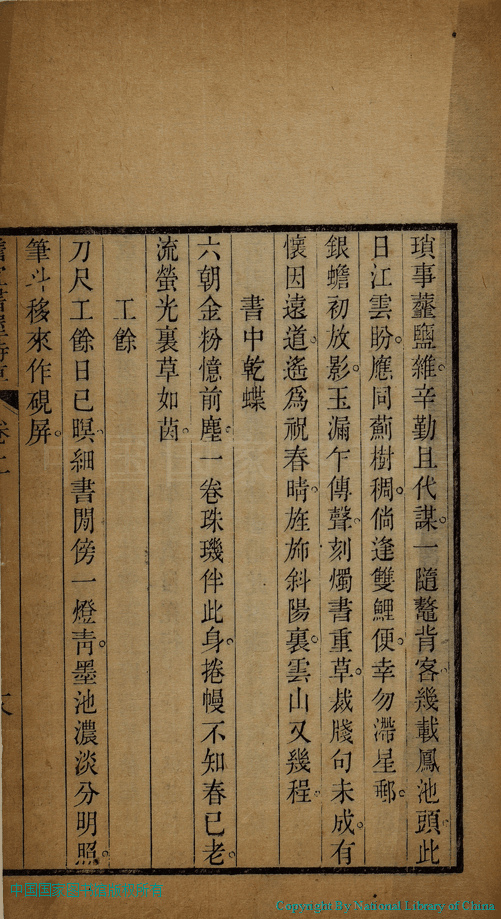 瑣事虀鹽維。辛勤且代謀。一隨鼇背客。幾載鳳池頭。此
日江雲盼。應同薊樹稠。倘逢雙鯉便。幸勿滯星郵。
銀蟾初放影。玉漏乍傳聲。刻燭書重草。裁牋句未成。有
懷因遠道。遙爲祝春晴。旌斾斜陽裏。雲山又幾程。
書中乾蝶
六朝金粉憶前塵。一卷珠璣伴此身。捲幔不知春已老。
流螢光裏草如茵。
工餘
刀尺工餘日已暝。細書閒傍一燈靑。墨池濃淡分明照。
筆斗移來作硯屏。
中国国家
Copyright by National Library of China